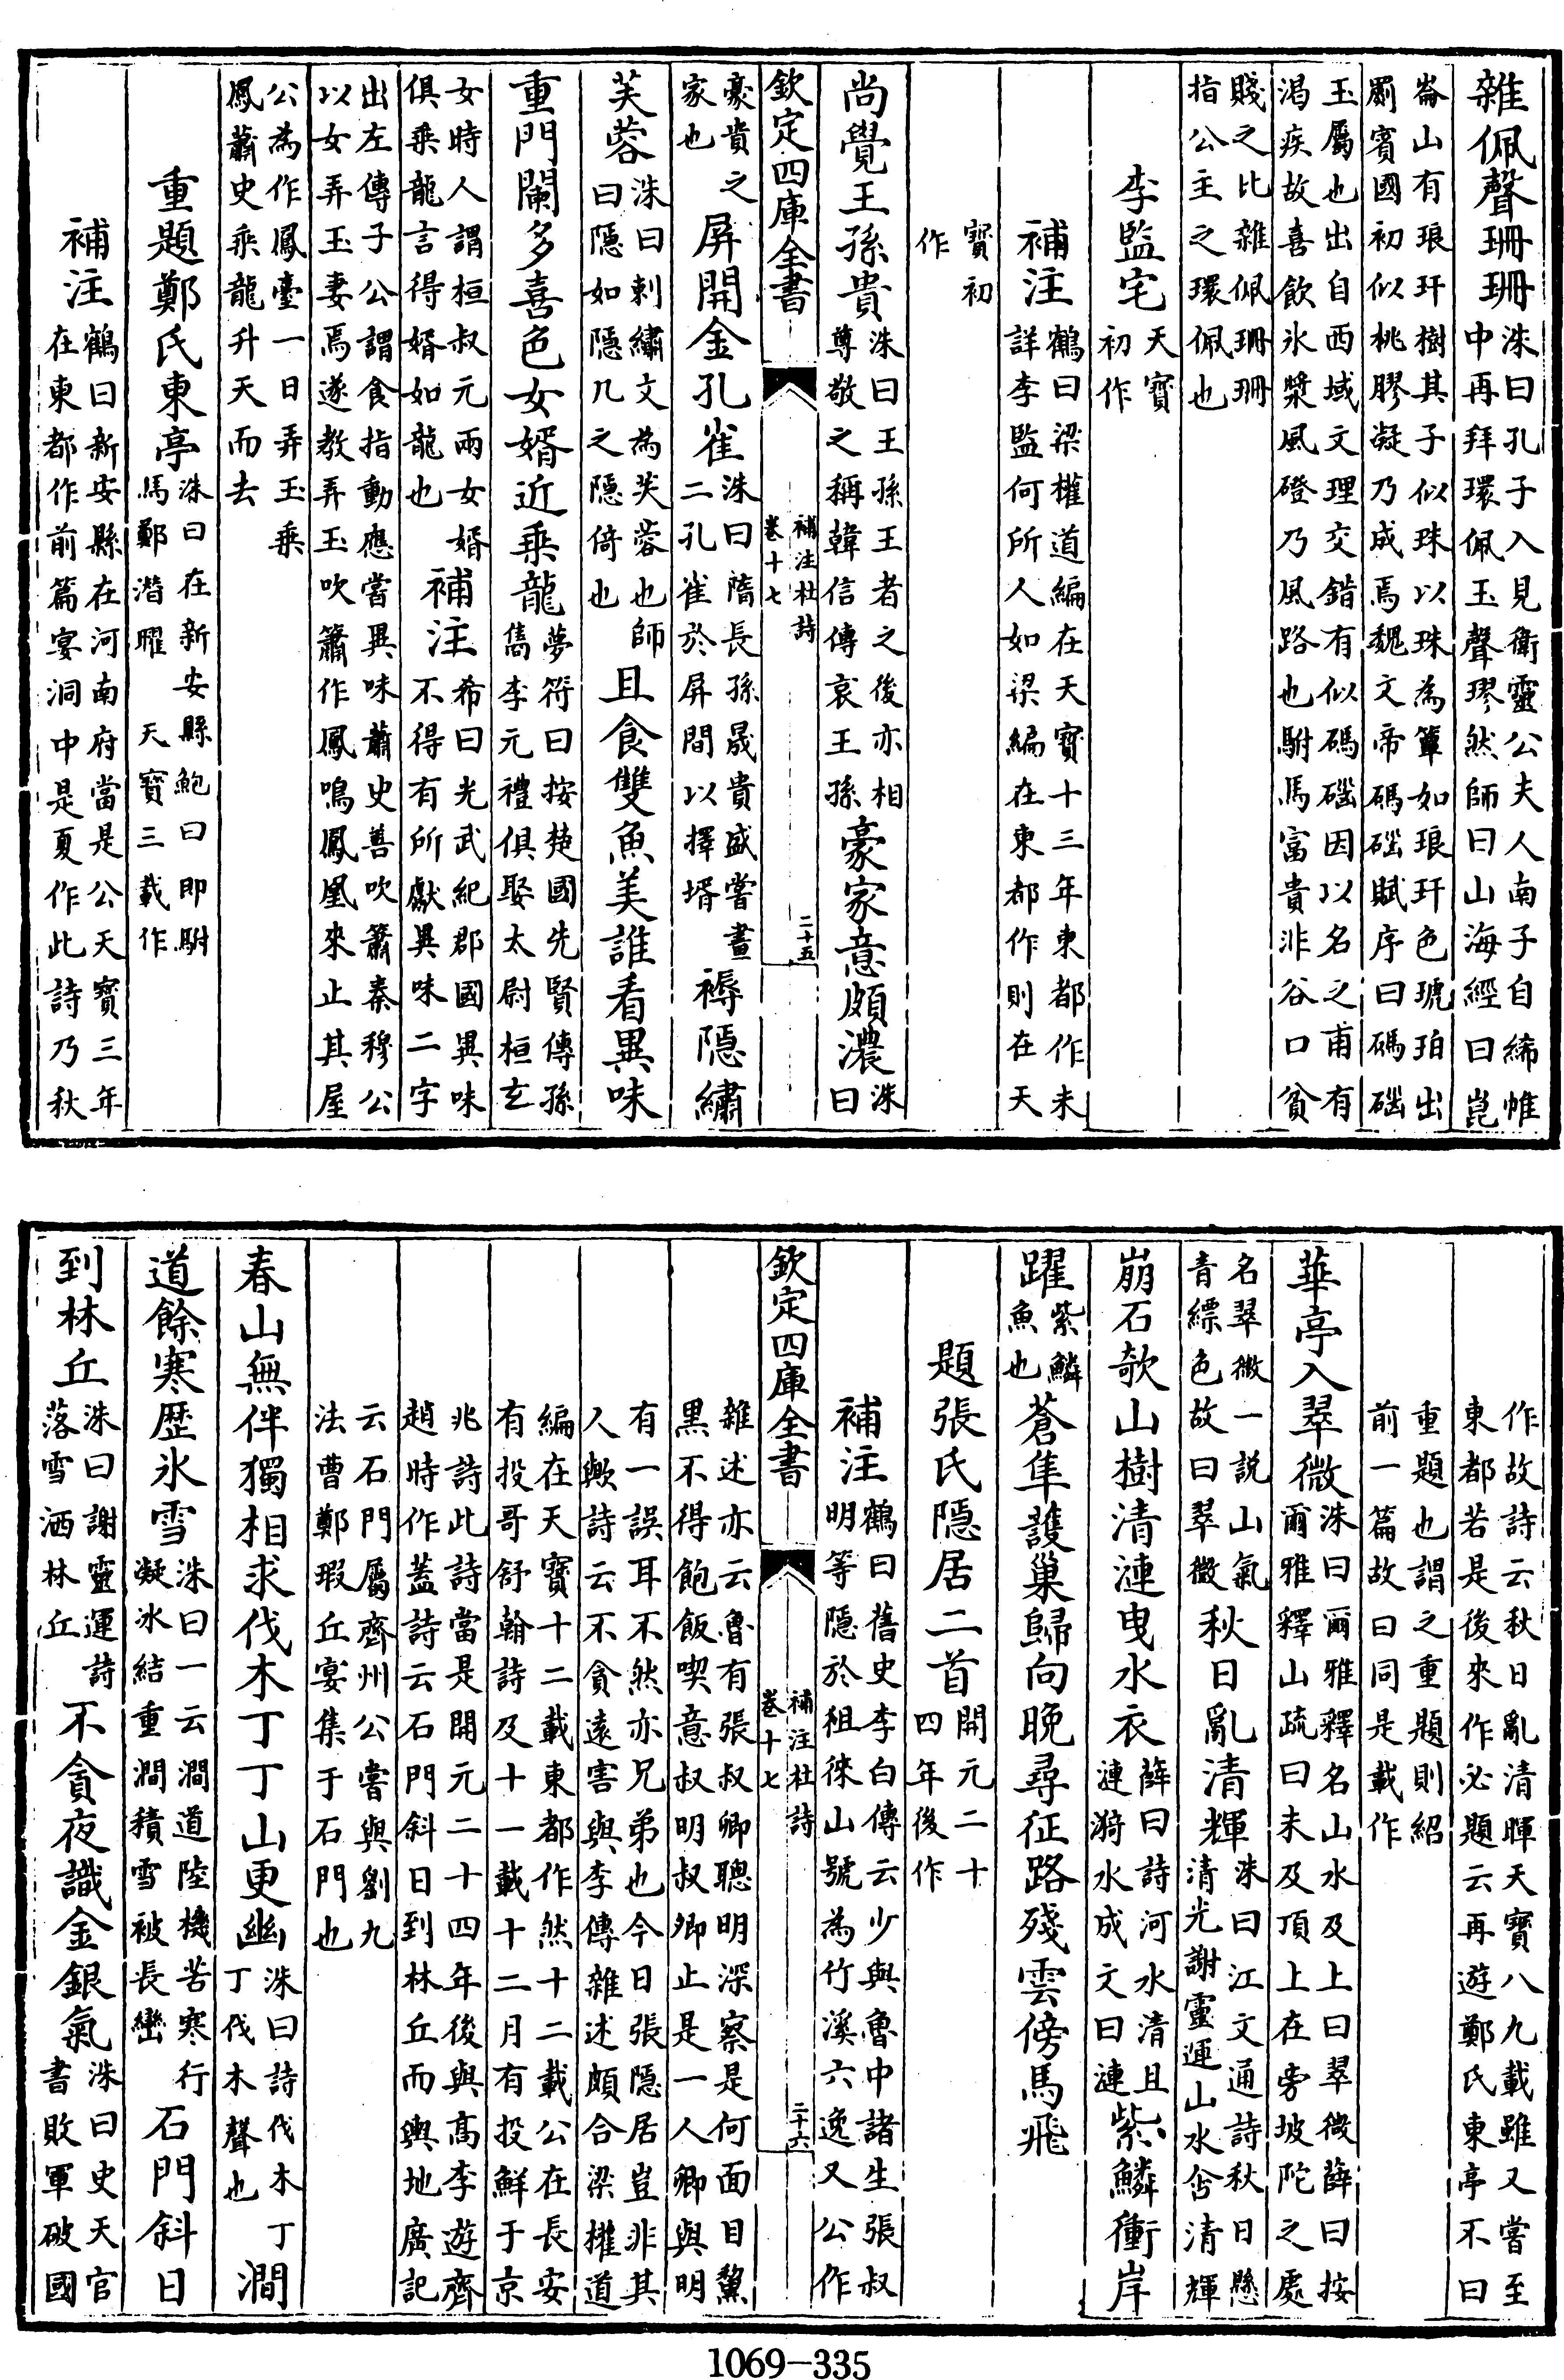 雜佩聲珊珊洙曰孔子入見衛靈公夫人南子自絺帷中再拜環佩玉聲璆然師曰山海經曰崑
崙山有琅玕樹其子似珠以珠為簟如琅玕色琥珀出罽賓國初似桃膠凝乃成焉魏文帝碼碯賦序曰碼碯
玉屬也出自西域文理交錯有似碼碯因以名之甫有渴疾故喜飲氷漿風磴乃風路也駙馬富貴非谷口貧
賤之比雜佩珊珊指公主之環佩也
李監宅天寶初作
補注鶴曰梁權道編在天寶十三年東都作未詳李監何所人如梁編在東都作則在天
寶初作
尚覺王孫貴洙曰王孫王者之後亦相尊敬之稱韓信傳哀王孫豪家意頗濃洙曰
欽定四庫全書 補注杜詩 卷十七 二十五
豪貴之家也屏開金孔雀洙曰隋長孫晟貴盛嘗畫二孔雀於屏間以擇壻褥隱繡
芙蓉洙曰刺繡文為芙蓉也師曰隱如隱几之隱倚也且食雙魚美誰看異味
重門闌多喜色女婿近乘龍夢符曰按楚國先賢傳孫雋李元禮俱娶太尉桓玄
女時人謂桓叔元兩女婿俱乘龍言得婿如龍也補注希曰光武紀郡國異味不得有所獻異味二字
出左傳子公謂食指動應嘗異味蕭史善吹簫秦穆公以女弄玉妻焉遂教弄玉吹簫作鳳鳴鳳凰來止其屋
公為作鳳臺一日弄玉乘鳳蕭史乘龍升天而去
重題鄭氏東亭洙曰在新安縣鮑曰即駙馬鄭潛曜 天寶三載作
補注鶴曰新安縣在河南府當是公天寶三年在東都作前篇宴洞中是夏作此詩乃秋
作故詩云秋日亂清暉天寶八九載雖又嘗至東都若是後來作必題云再遊鄭氏東亭不曰
重題也謂之重題則紹前一篇故曰同是載作
華亭入翠微洙曰爾雅釋名山水及上曰翠微薛曰按爾雅釋山疏曰未及頂上在旁坡陀之處
名翠微一説山氣青縹色故曰翠微秋日亂清輝洙曰江文通詩秋日懸清光謝靈運山水含清輝
崩石欹山樹清漣曳水衣薛曰詩河水清且漣漪水成文曰漣紫鱗衝岸
躍紫鱗魚也蒼隼護巢歸向晚尋征路殘雲傍馬飛
題張氏隱居二首開元二十四年後作
補注鶴曰舊史李白傳云少與魯中諸生張叔明等隱於徂徠山號為竹溪六逸又公作
欽定四庫全書 補注杜詩 卷十七 二十六
雜述亦云魯有張叔卿聰明深察是何面目黧黑不得飽飯喫意叔明叔卿止是一人卿與明
有一誤耳不然亦兄弟也今日張隱居豈非其人歟詩云不貪遠害與李傳雜述頗合梁權道
編在天寶十二載東都作然十二載公在長安有投哥舒翰詩及十一載十二月有投鮮于京
兆詩此詩當是開元二十四年後與高李遊齊趙時作蓋詩云石門斜日到林丘而輿地廣記
云石門屬齊州公嘗與劉九法曹鄭瑕丘宴集于石門也
春山無伴獨相求伐木丁丁山更幽洙曰詩伐木丁丁伐木聲也澗
道餘寒歴氷雪洙曰一云澗道陸機苦寒行凝氷結重澗積雪被長巒石門斜日
到林丘洙曰謝靈運詩落雪洒林丘不貪夜識金銀氣洙曰史天官書敗軍破國
1069—335